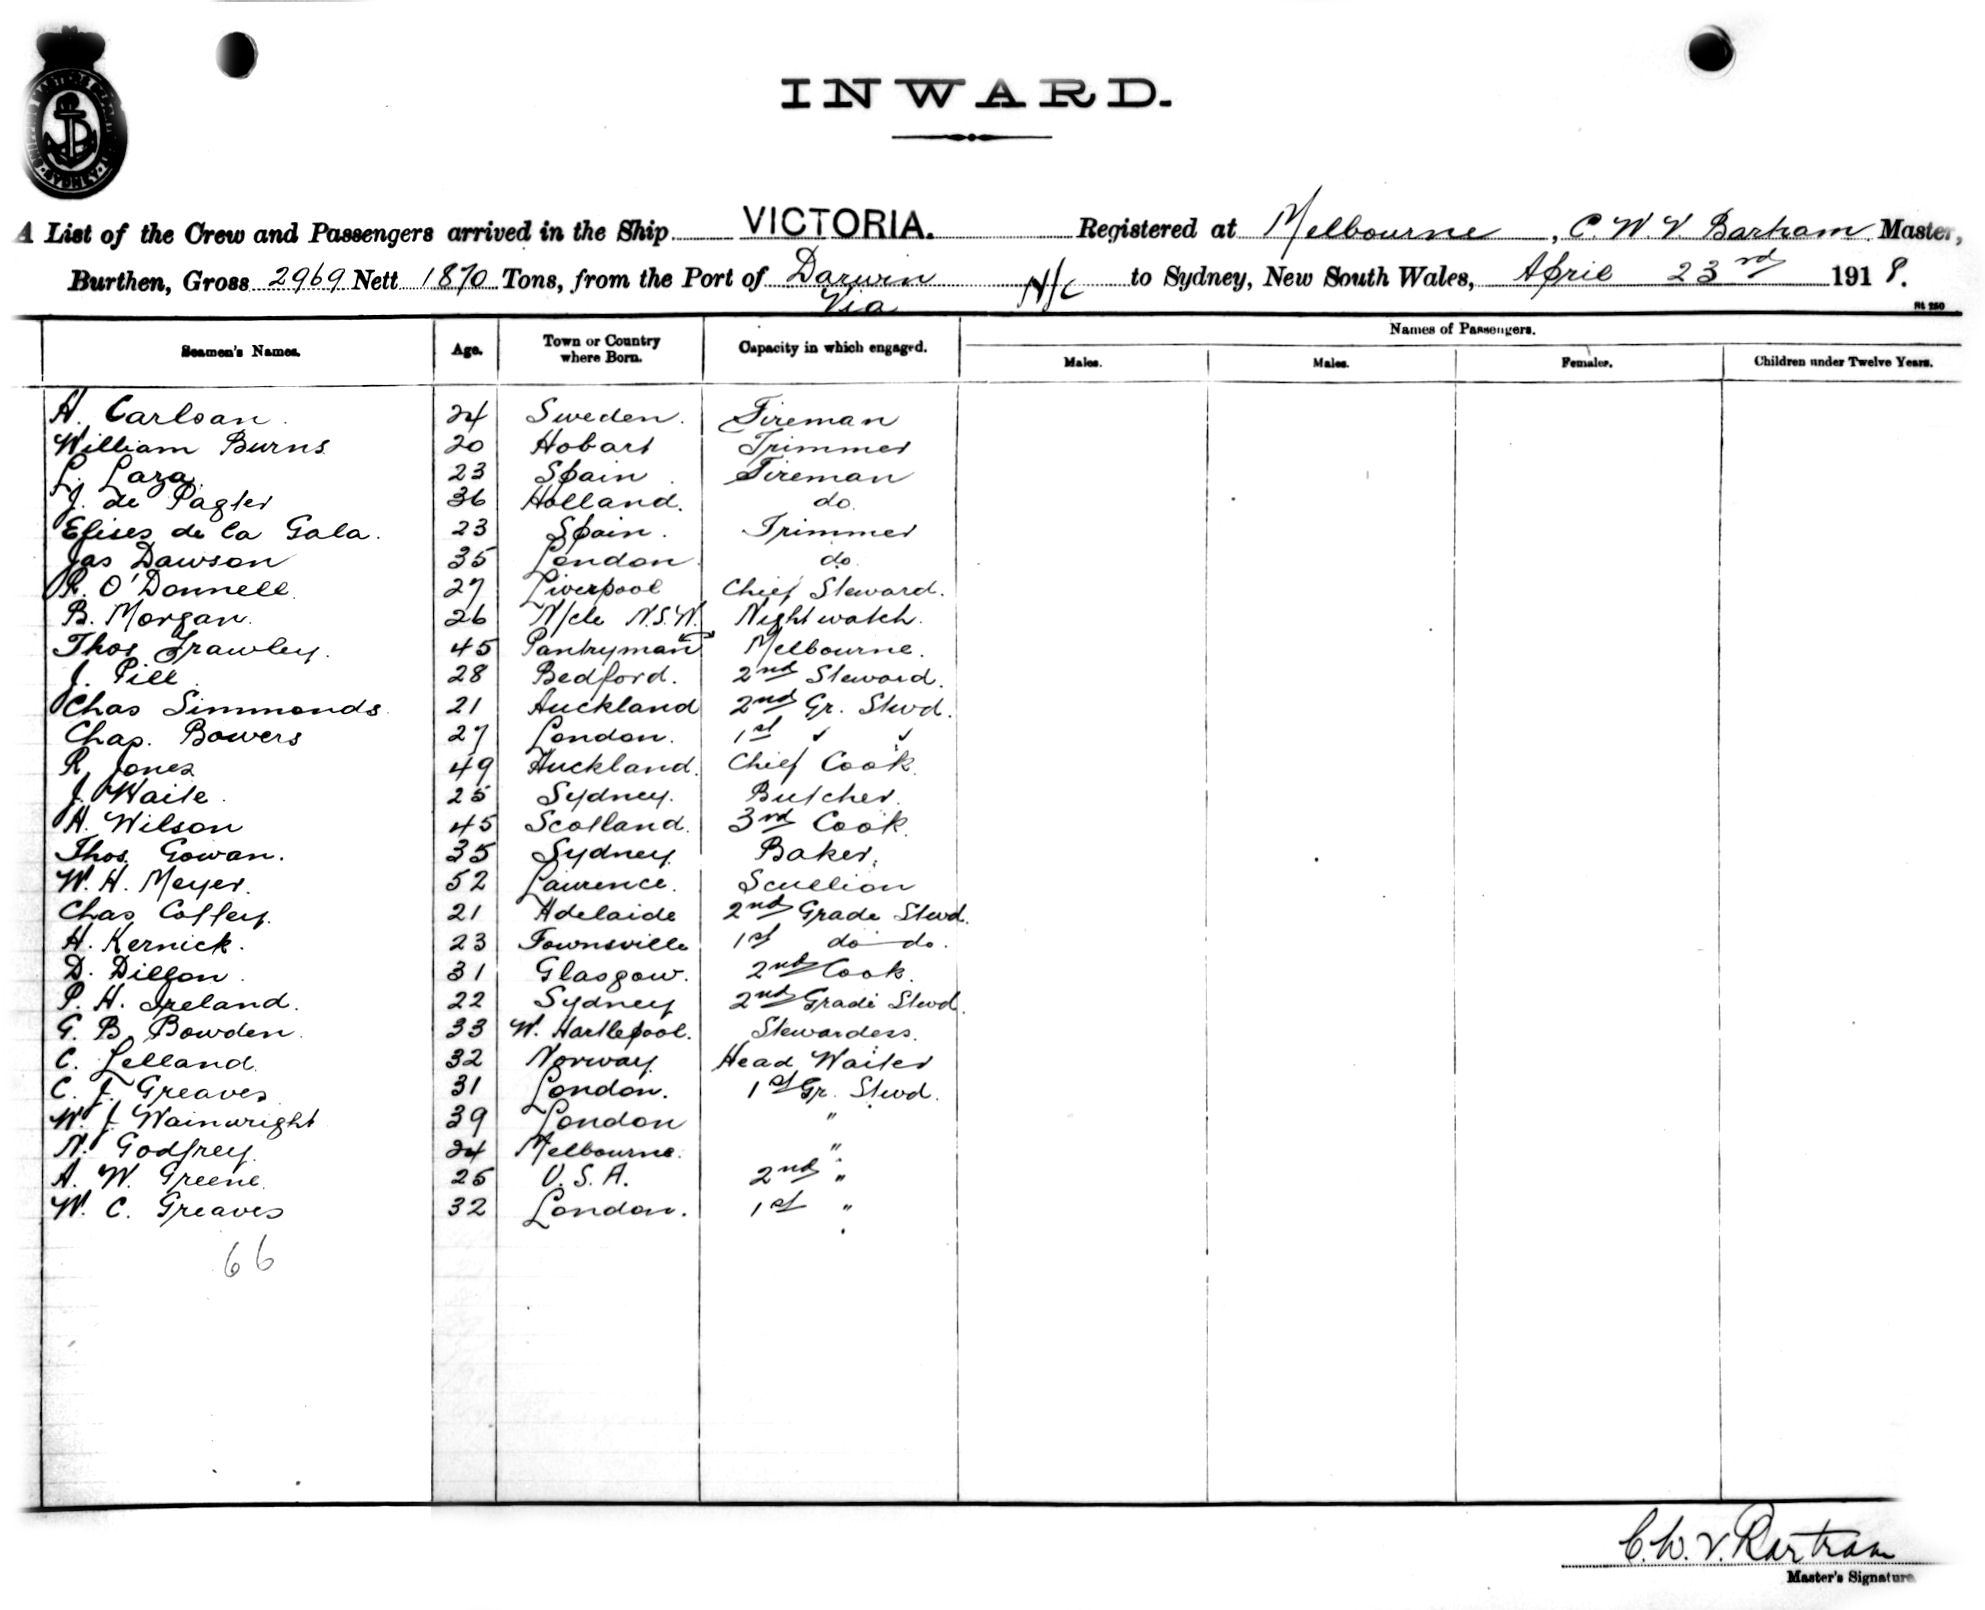 INWARD.
A List of the Crew and Passengers arrived in the Ship VICTORIA. Registered at Melbourne, C. W. V Barham Master,
Burthen, Gross 2969 Nett 1870 Tons, from the Port of Darwin Via N/c to Sydney, New South Wales, April 23rd 1918.
Seamen's Names. Age. Town or Country where Born. Capacity in which engaged. Names of Passengers.
Males. Males. Females. Children under Twelve Years.
H. Carlson. 24 Sweden. Fireman
William Burns 20 Hobart Trimmer
L. Laza. 23 Spain. Fireman
J. de Pagter 36 Holland. do.
Elises de la Gala. 23 Spain. Trimmer
Jas Dawson 35 London do.
R. O'Donnell. 27 Liverpool Chief Steward.
B. Morgan. 26 N/cle N.S.W. Nightwatch.
Thos Frawley. 45 Pantryman Melbourne.
J. Pill 28 Bedford. 2nd Steward.
Chas Simmonds. 21 Auckland 2nd Gr. Stwd.
Chas. Bowers 27 London. 1st " "
R. Jones 49 Auckland. Chief Cook.
J. Waite. 25 Sydney. Butcher.
A. Wilson 45 Scotland. 3rd Cook.
Thos. Gowan. 35 Sydney Baker.
W. H. Meyer. 52 Laurence. Scullion
Chas Coffey. 21 Adelaide 2nd Grade Stwd.
H. Kernick. 23 Townsville 1st do do.
D. Dillon. 31 Glasgow. 2nd Cook.
P. H. Ireland. 22 Sydney 2nd Grade Stwd.
G. B. Bowden. 33 W. Hartlepool. Stewardess.
C. Lelland. 32 Norway Head Waiter
C. J. Greaves 31 London. 1st Gr. Stwd.
W. J. Wainwright 39 London "
N. Godfrey. 24 Melbourne. "
A. W. Greene. 25 U.S.A. 2nd "
W. C. Greaves 32 London. 1st "
66
C. W. V. Bartram
Master's Signature